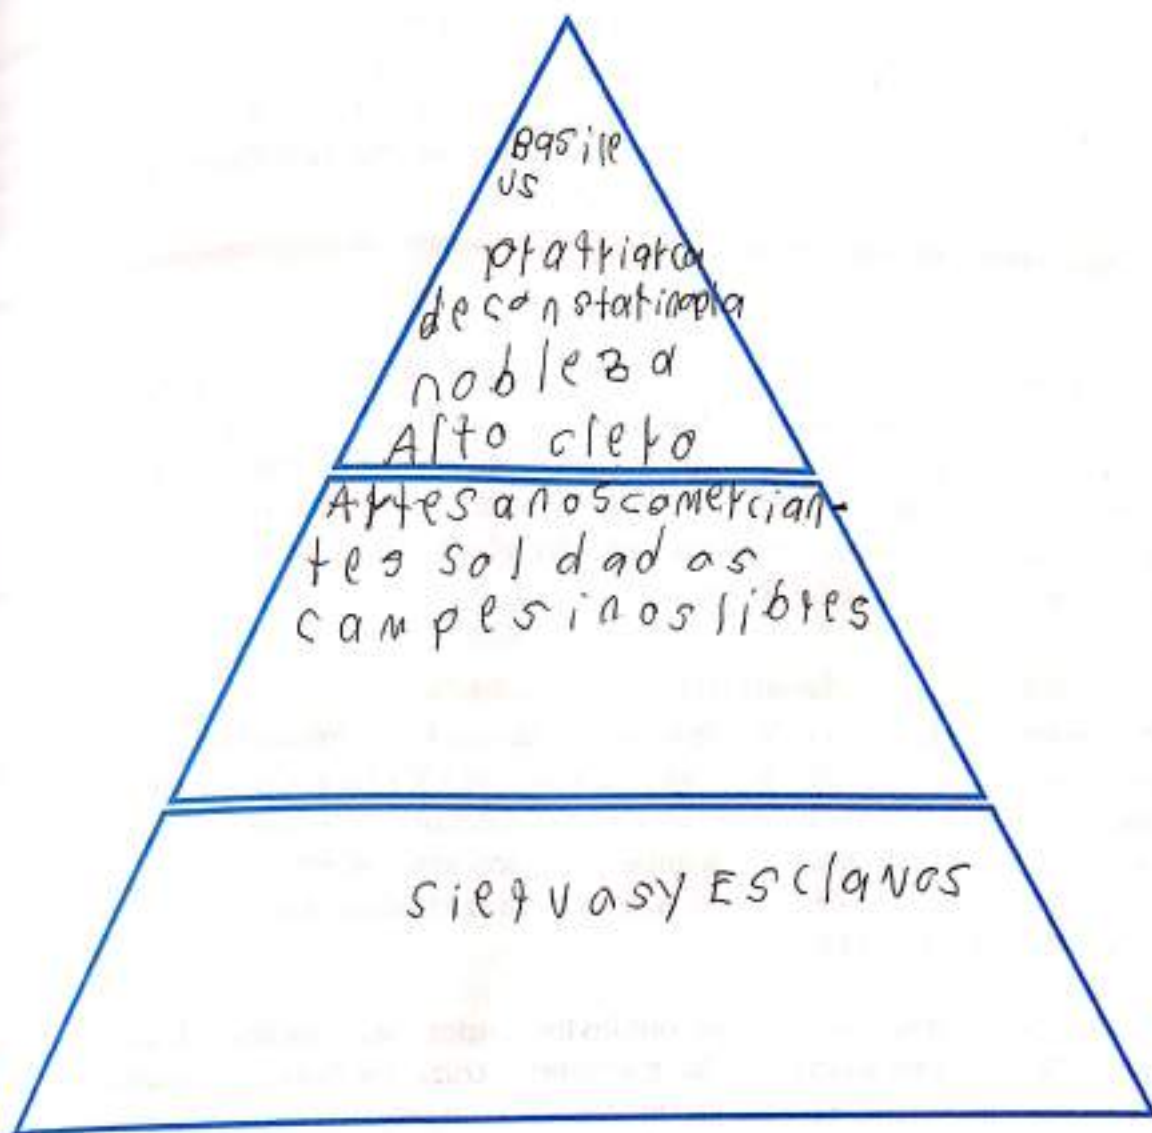 Basile
us
ptatriarca
deconstatinopla
nobleza
Alto clero
Artesanoscomercian-
tes soldados
campesinoslibres
siervosy ESclavos